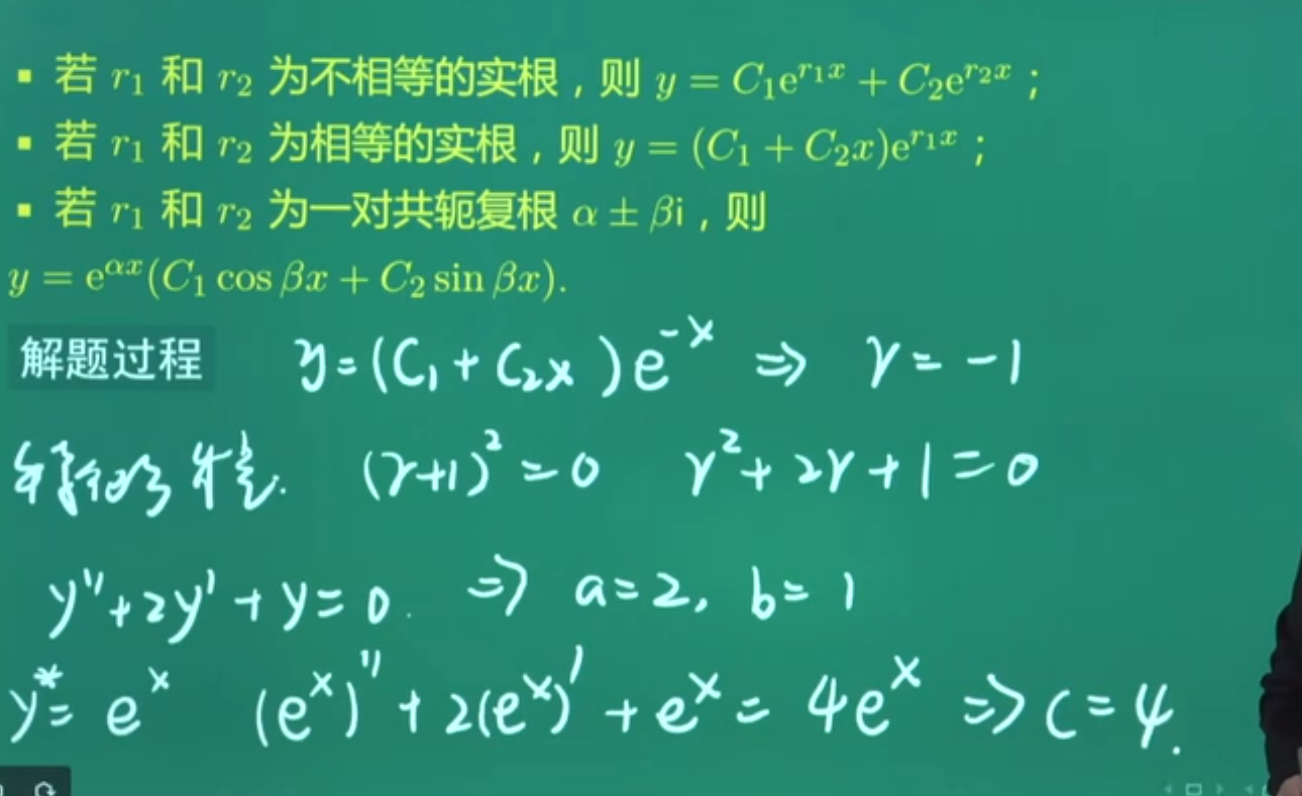 ▪ 若 r₁ 和 r₂ 为不相等的实根，则 y = C₁e^{r₁x} + C₂e^{r₂x}；
▪ 若 r₁ 和 r₂ 为相等的实根，则 y = (C₁ + C₂x)e^{r₁x}；
▪ 若 r₁ 和 r₂ 为一对共轭复根 α ± βi，则
y = e^{αx}(C₁ cos βx + C₂ sin βx).
解题过程 y=(C₁+C₂x)e^{-x} ⇒ r=-1
(r+1)²=0 r²+2r+1=0
y''+2y'+y=0. ⇒ a=2, b=1
y*=e^x (e^x)''+2(e^x)'+e^x=4e^x ⇒ c=4.